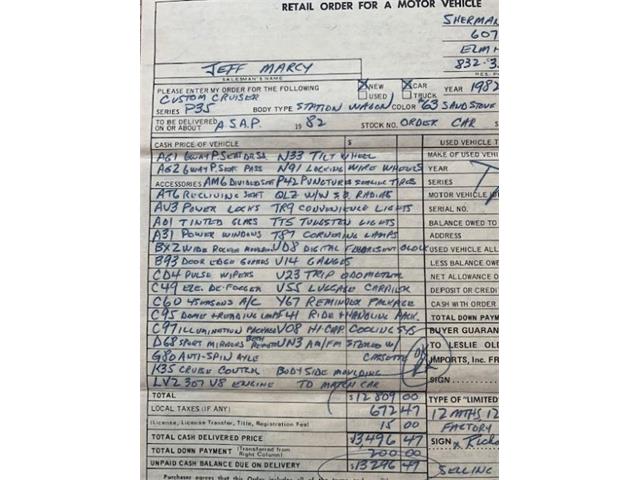 RETAIL ORDER FOR A MOTOR VEHICLE
SHERMAN
607
ELM H
832-3
JEFF MARCY
SALESMAN'S NAME
RES. P
PLEASE ENTER MY ORDER FOR THE FOLLOWING
X NEW X CAR YEAR 1982
USED TRUCK
CUSTOM CRUISER
SERIES P35 BODY TYPE STATION WAGON COLOR "63 SANDSTONE
TO BE DELIVERED ON OR ABOUT A.S.A.P. 1982 STOCK NO. ORDER CAR S
CASH PRICE OF VEHICLE $ USED VEHICLE T
AG1 6WAY P. SEAT DR SD N33 TILT WHEEL MAKE OF USED V
AG2 6WAY P. SEAT PASS N91 LOCKING WIRE WHEELS YEAR
ACCESSORIES AM6 DIVIDED SEAT P42 PUNCTURE SEALING TIRES SERIES
AT6 RECLINING SEAT QLZ W/W S.B. RADIAL MOTOR VEHICLE
AV3 POWER LOCKS TR9 CONVENIENCE LIGHTS SERIAL NO.
A01 TINTED GLASS TT5 TUNGSTEN LIGHTS BALANCE OWED TO
A31 POWER WINDOWS T87 CORNERING LAMPS ADDRESS
BX2 WIDE ROCKER MOULDING UD8 DIGITAL CLOCK USED VEHICLE ALL
B93 DOOR EDGE GUARDS U14 GAUGES LESS BALANCE OWE
CD4 PULSE WIPERS U23 TRIP ODOMETER NET ALLOWANCE O
C49 ELE. DE-FOGGER V55 LUGGAGE CARRIER DEPOSIT OR CREDIT
C60 4 SEASONS A/C Y67 REMINDER PACKAGE CASH WITH ORDER
C95 DOME & READING LAMP S41 RIDE & HANDLING PACK. TOTAL DOWN PAYM
C97 ILLUMINATION PACKAGE V08 HI CAP. COOLING SYS BUYER GUARAN
D68 SPORT MIRRORS BOTH REMOTE UN3 AM/FM STEREO W/ TO LESLIE OLD
G80 ANTI-SPIN AXLE CASSETTE OK IMPORTS, Inc. FR
K35 CRUISE CONTROL BODYSIDE MOULDING
LV2 307 V8 ENGINE TO MATCH CAR SIGN
TOTAL $12809 00 TYPE OF "LIMITED
LOCAL TAXES (IF ANY) 672 47 12 MTHS 12
(License, License Transfer, Title, Registration Fee) 15 00 FACTORY
TOTAL CASH DELIVERED PRICE $13,496 47 SIGN X
TOTAL DOWN PAYMENT (Transferred from Right Column) 200 00
UNPAID CASH BALANCE DUE ON DELIVERY $13296 47 SELLING
Purchaser agrees that this Order includes all of the